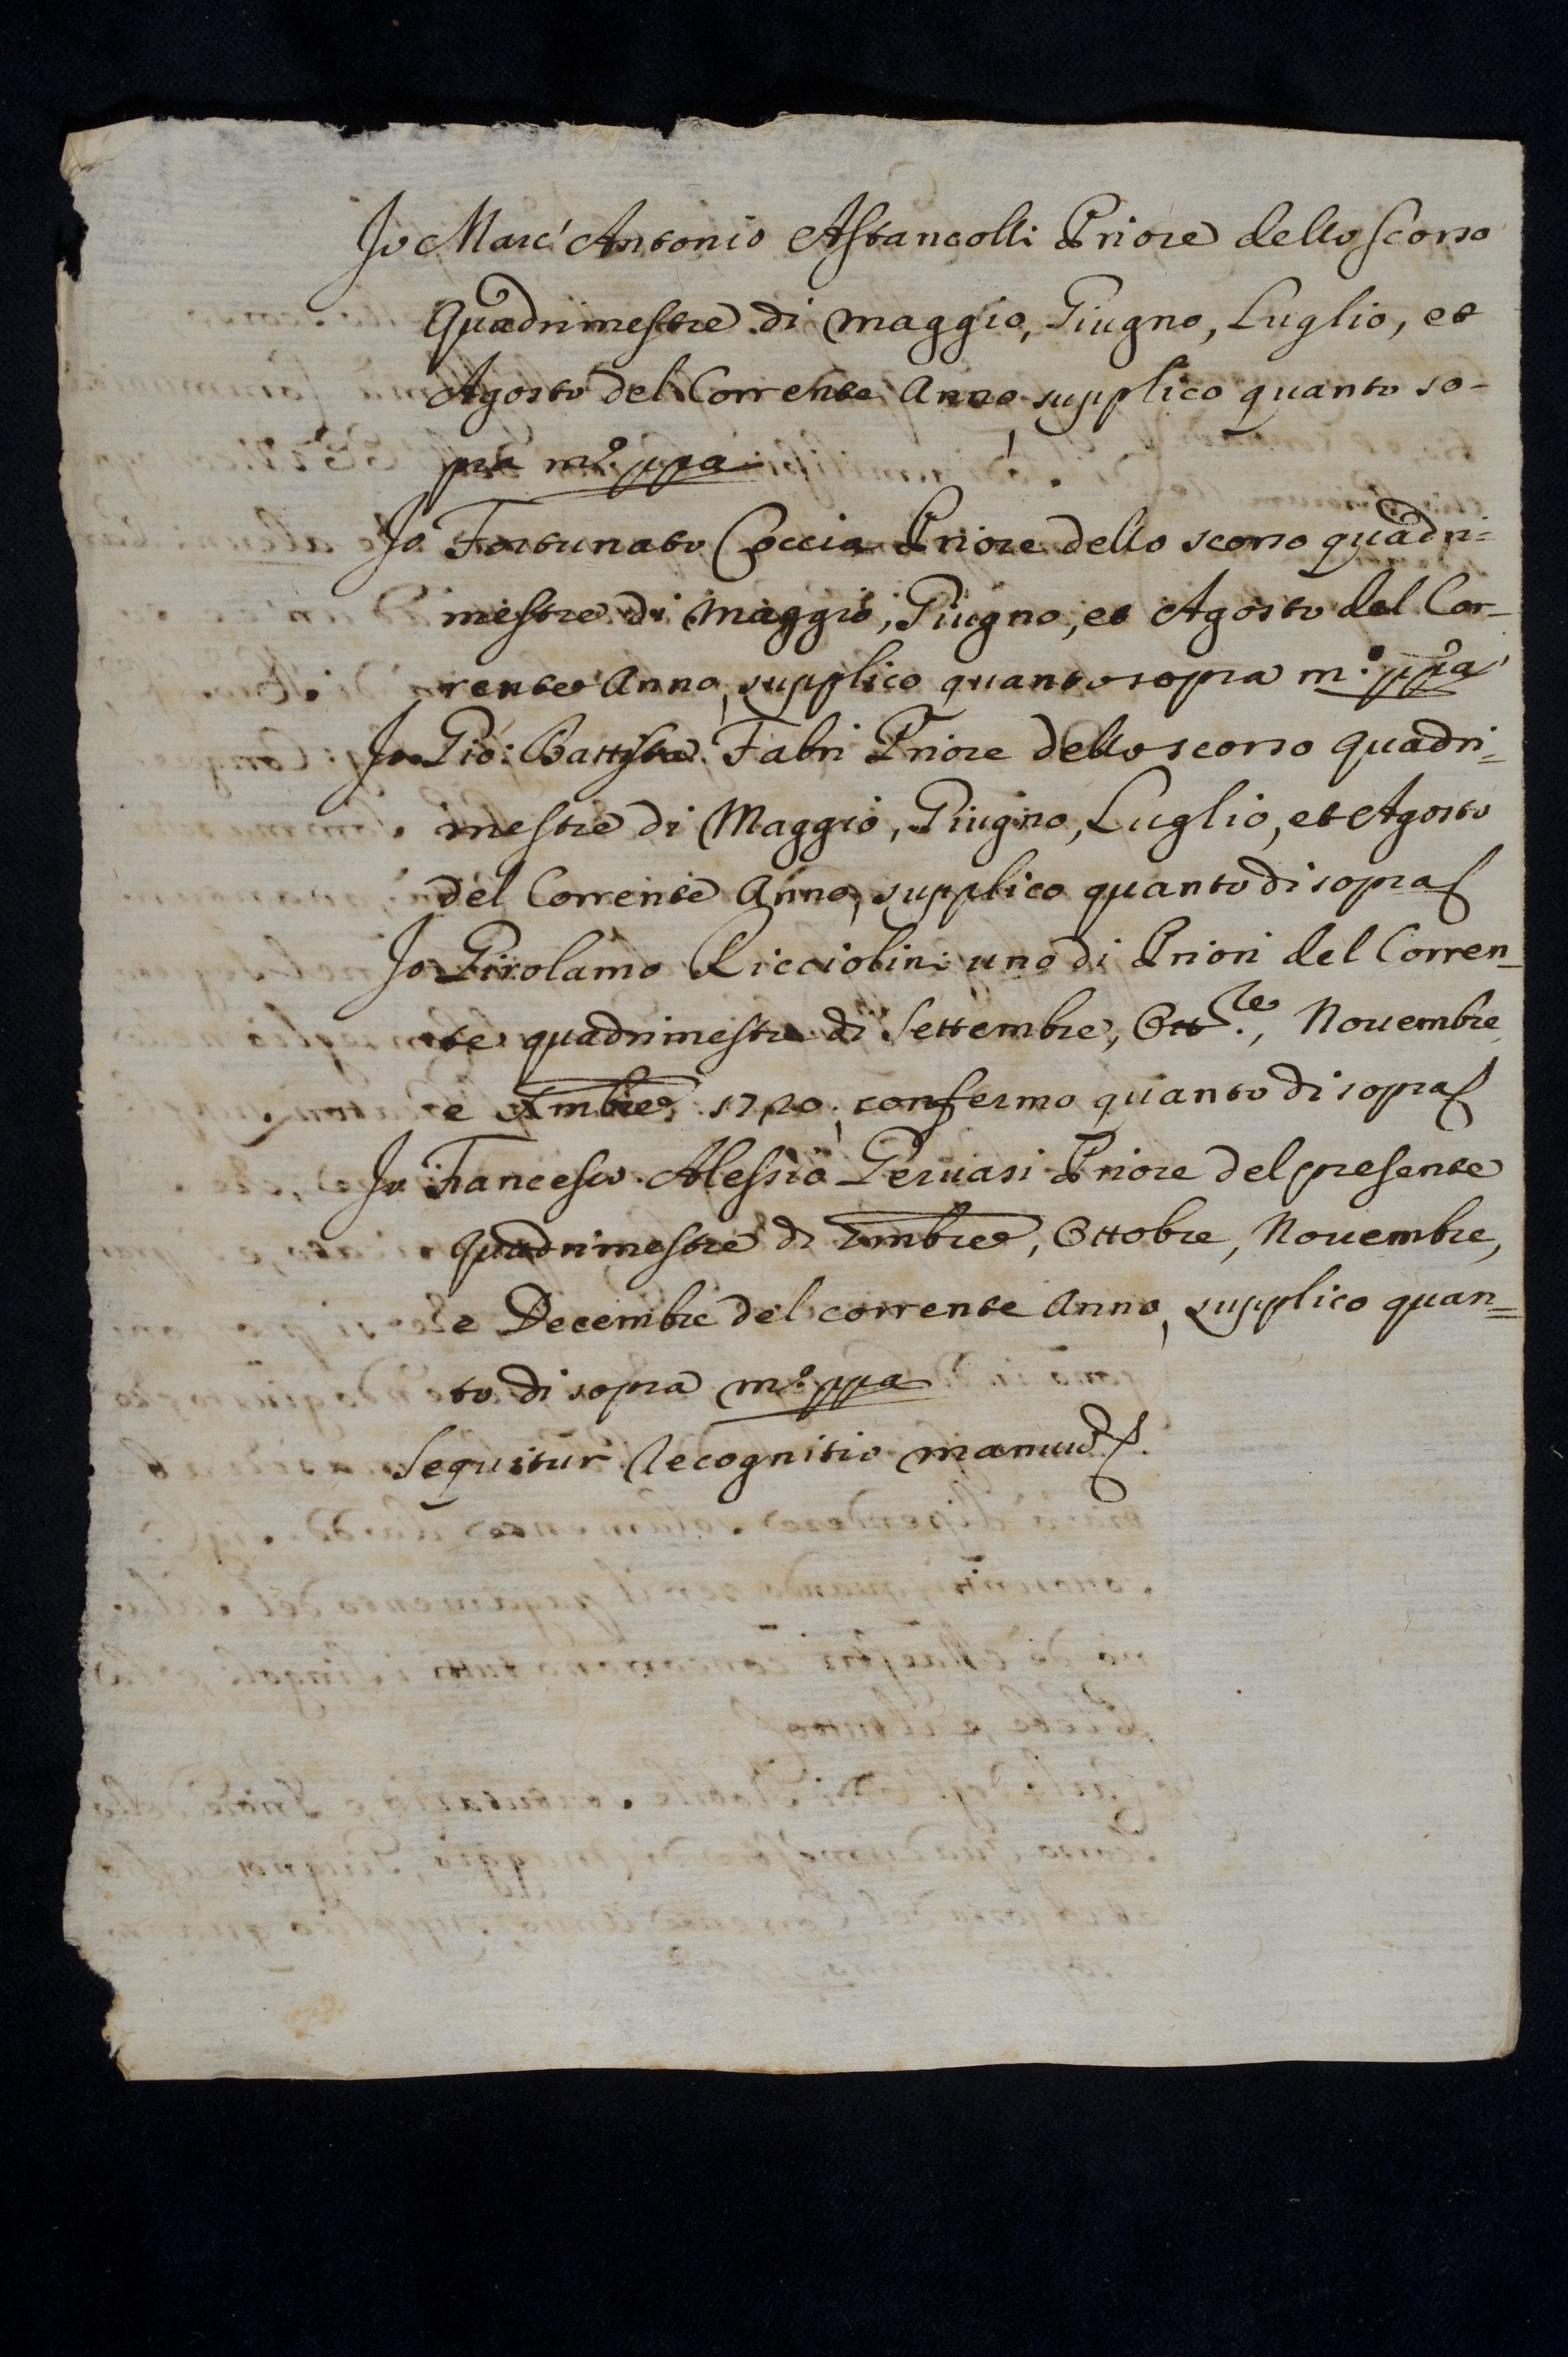 Io Marc'Antonio Astancolli Priore dello scorso
quadrimestre di Maggio, Giugno, Luglio, et
Agosto del Corrente Anno, supplico quanto so-
pra m.º ppa
Io Fortunato Coccia Priore dello scorso quadri=
mestre di Maggio, Giugno, et Agosto del Cor-
rente Anno, supplico quanto sopra m.º ppa
Io Gio: Battista Fabri Priore dello scorso quadri=
mestre di Maggio, Giugno, Luglio, et Agosto
del Corrente Anno, supplico quanto di sopra
Io Girolamo Ricciolini uno di Priori del Corren-
te quadrimestre di Settembre, Ott.re, Novembre
e Xmbre 1720, confermo quanto di sopra
Io Francesco Alessio Gervasi Priore del presente
quadrimestre di 7mbre, Ottobre, Novembre,
e Decembre del corrente Anno, supplico quan=
to di sopra m.º ppa
Sequitur Recognitio manuu